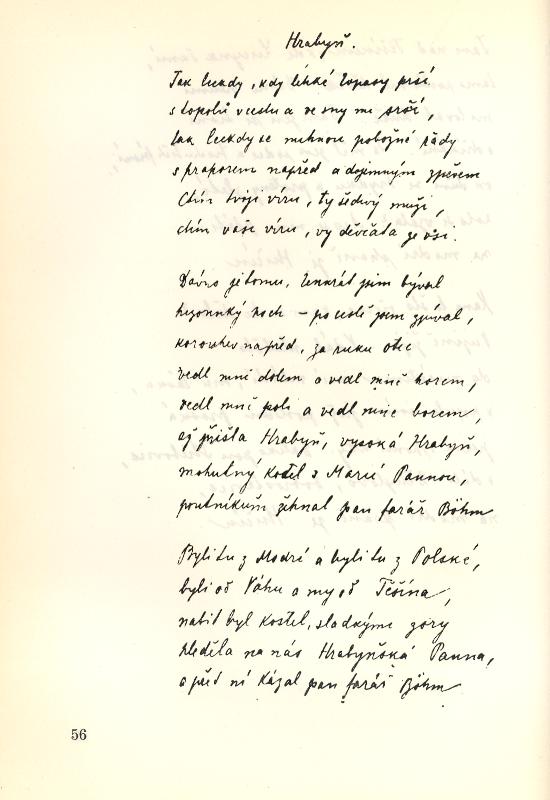 Hrabyň.
Tak leckdy, kdy lehké kopasy prší
s topolů v cestu a ve sny mi srší,
tak leckdy se mihnou pobožné řady
s praporem napřed a dojemným zpěvem
Ctím tvoji víru, ty šedivý muži,
ctím vaše víru, vy děvčata ze vsi.
Dávno je tomu, tenkrát jsem býval
hezounký hoch – po cestě jsem zpíval,
korouhev napřed, za ruku otec
vedl mně dolem a vedl mně horem,
vedl mně poli a vedl mne borem,
až přišla Hrabyň, vysoká Hrabyň,
mohutný kostel s Marií Pannou,
poutníkům žehnal pan farář Böhm
Byli tu z Modré a byli tu z Polské,
byli od Váhu a my od Těšína,
nabit byl kostel, sladkými zory
hleděla na nás Hrabyňská Panna,
a před ní kázal pan farář Böhm
56